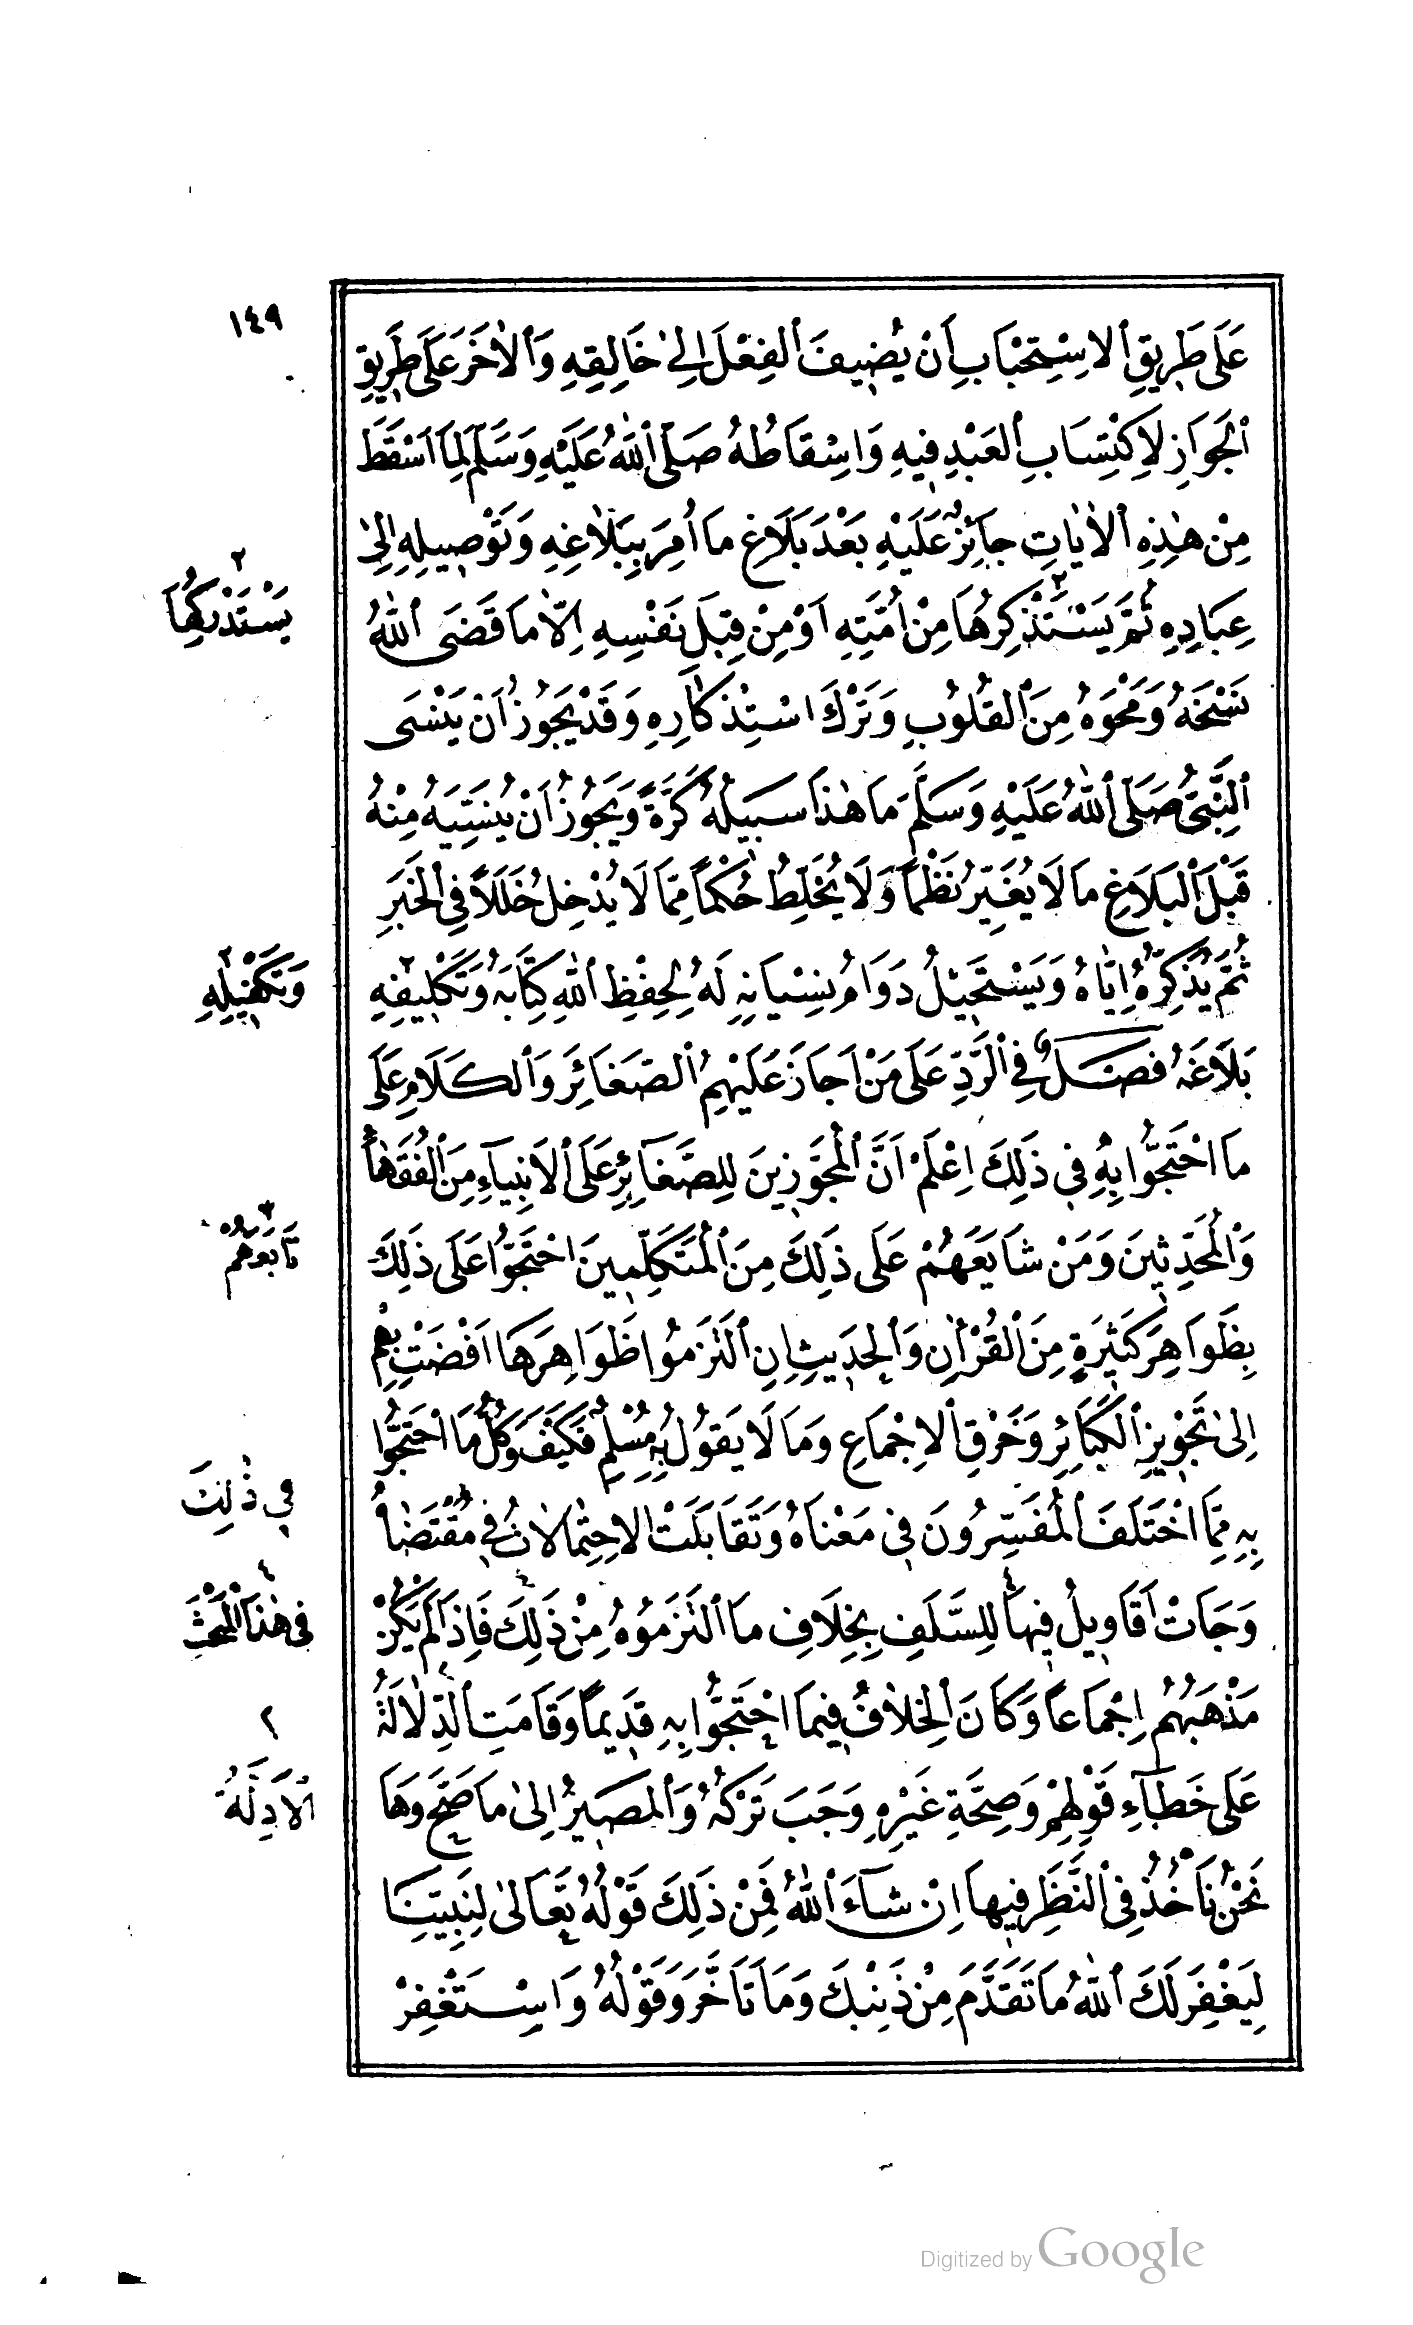 ١٤٩
عَلَى طَرِيقِ ٱلاِسْتِحْبَابِ اَنْ يُضِيفَ ٱلفِعْلَ اِلىٰ خَالِقِهِ وَٱلاٰخَرَ عَلَى طَرِيقِ
ٱلجَوَازِ لِاِكْتِسَابِ ٱلعَبْدِ فِيهِ وَاِسْقَاطُهُ صَلَّى ٱللهُ عَلَيْهِ وَسَلَّمَ لِمَا اَسْقَطَ
مِنْ هٰذِهِ ٱلاٰيَاتِ جَائِزٌ عَلَيْهِ بَعْدَ بَلَاغِ مَا اُمِرَ بِبَلَاغِهِ وَتَوْصِيلِهِ اِلىٰ
٢
يَسْتَدْرِكُهَا
عِبَادِهِ ثُمَّ يَسْتَذْكِرُهَا ٢ مِنْ اُمَّتِهِ اَوْ مِنْ قِبَلِ نَفْسِهِ اِلَّا مَا قَضَى ٱللهُ
نَسْخَهُ وَمَحْوَهُ مِنَ ٱلقُلُوبِ وَتَرْكَ اسْتِذْكَارِهِ وَقَدْ يَجُوزُ اَنْ يَنْسَى
ٱلنَّبِىُّ صَلَّى ٱللهُ عَلَيْهِ وَسَلَّمَ مَا هٰذَا سَبِيلُهُ كَرَّةً وَيَجُوزُ اَنْ يُنَسِّيَهُ مِنْهُ
قَبْلَ ٱلبَلَاغِ مَا لَا يُغَيِّرُ نَظْمًا وَلَا يُخَلِّطُ حُكْمًا مِمَّا لَا يُدْخِلُ خَلَلًا فِى ٱلخَبَرِ
٢
وَتَكْفِيلِهِ
ثُمَّ يُذَكِّرُهُ اِيَّاهُ وَيَسْتَحِيلُ دَوَامُ نِسْيَانِهِ لَهُ لِحِفْظِ ٱللهِ كِتَابَهُ وَتَكْلِيفِهِ ٢
بَلَاغَهُ فَصْلٌ فِى ٱلرَّدِّ عَلَى مَنْ اَجَازَ عَلَيْهِمُ ٱلصَّغَائِرَ وَٱلكَلَامِ عَلَى
مَا احْتَجُّوا بِهِ فِى ذٰلِكَ اِعْلَمْ اَنَّ ٱلمُجَوِّزِينَ لِلصَّغَائِرِ عَلَى ٱلاَنْبِيَاءِ مِنَ ٱلفُقَهَاءِ
٣
تَابَعَهُمْ
وَٱلمُحَدِّثِينَ وَمَنْ شَايَعَهُمْ عَلَى ذٰلِكَ مِنَ ٱلمُتَكَلِّمِينَ احْتَجُّوا عَلَى ذٰلِكَ
بِظَوَاهِرَ كَثِيرَةٍ مِنَ ٱلقُرْاٰنِ وَٱلحَدِيثِ اِنِ ٱلتَزَمُوا ظَوَاهِرَهَا اَفْضَتْ بِهِمْ
اِلىٰ تَجْوِيزِ ٱلكَبَائِرِ وَخَرْقِ ٱلاِجْمَاعِ وَمَا لَا يَقُولُ بِهِ مُسْلِمٌ فَكَيْفَ وَكُلُّ مَا احْتَجُّوا
فِى ذٰلِكَ
بِهِ مِمَّا اخْتَلَفَ ٱلمُفَسِّرُونَ فِى مَعْنَاهُ وَتَقَابَلَتْ ٱلاِحْتِمَالَاتُ فِى مُقْتَضَاهُ
٤
فِى هٰذَا ٱلمَبْحَثِ
وَجَاءَتْ اَقَاوِيلُ فِيهَا ٤ لِلسَّلَفِ بِخِلَافِ مَا ٱلتَزَمُوهُ مِنْ ذٰلِكَ ٤ فَاِذَا لَمْ يَكُنْ
مَذْهَبُهُمْ اِجْمَاعًا وَكَانَ ٱلخِلَافُ فِيمَا احْتَجُّوا بِهِ قَدِيمًا وَقَامَتِ ٱلدِّلَالَةُ ٢
٢
ٱلاَدِلَّةُ
عَلَى خَطَاءِ قَوْلِهِمْ وَصِحَّةِ غَيْرِهِ وَجَبَ تَرْكُهُ وَٱلمَصِيرُ اِلىٰ مَا صَحَّ وَهَا
نَحْنُ نَأْخُذُ فِى ٱلنَّظَرِ فِيهَا اِنْ شَاءَ ٱللهُ فَمِنْ ذٰلِكَ قَوْلُهُ تَعَالىٰ لِنَبِيِّنَا
لِيَغْفِرَ لَكَ ٱللهُ مَا تَقَدَّمَ مِنْ ذَنْبِكَ وَمَا تَاَخَّرَ وَقَوْلُهُ وَاسْتَغْفِرْ
Digitized by Google